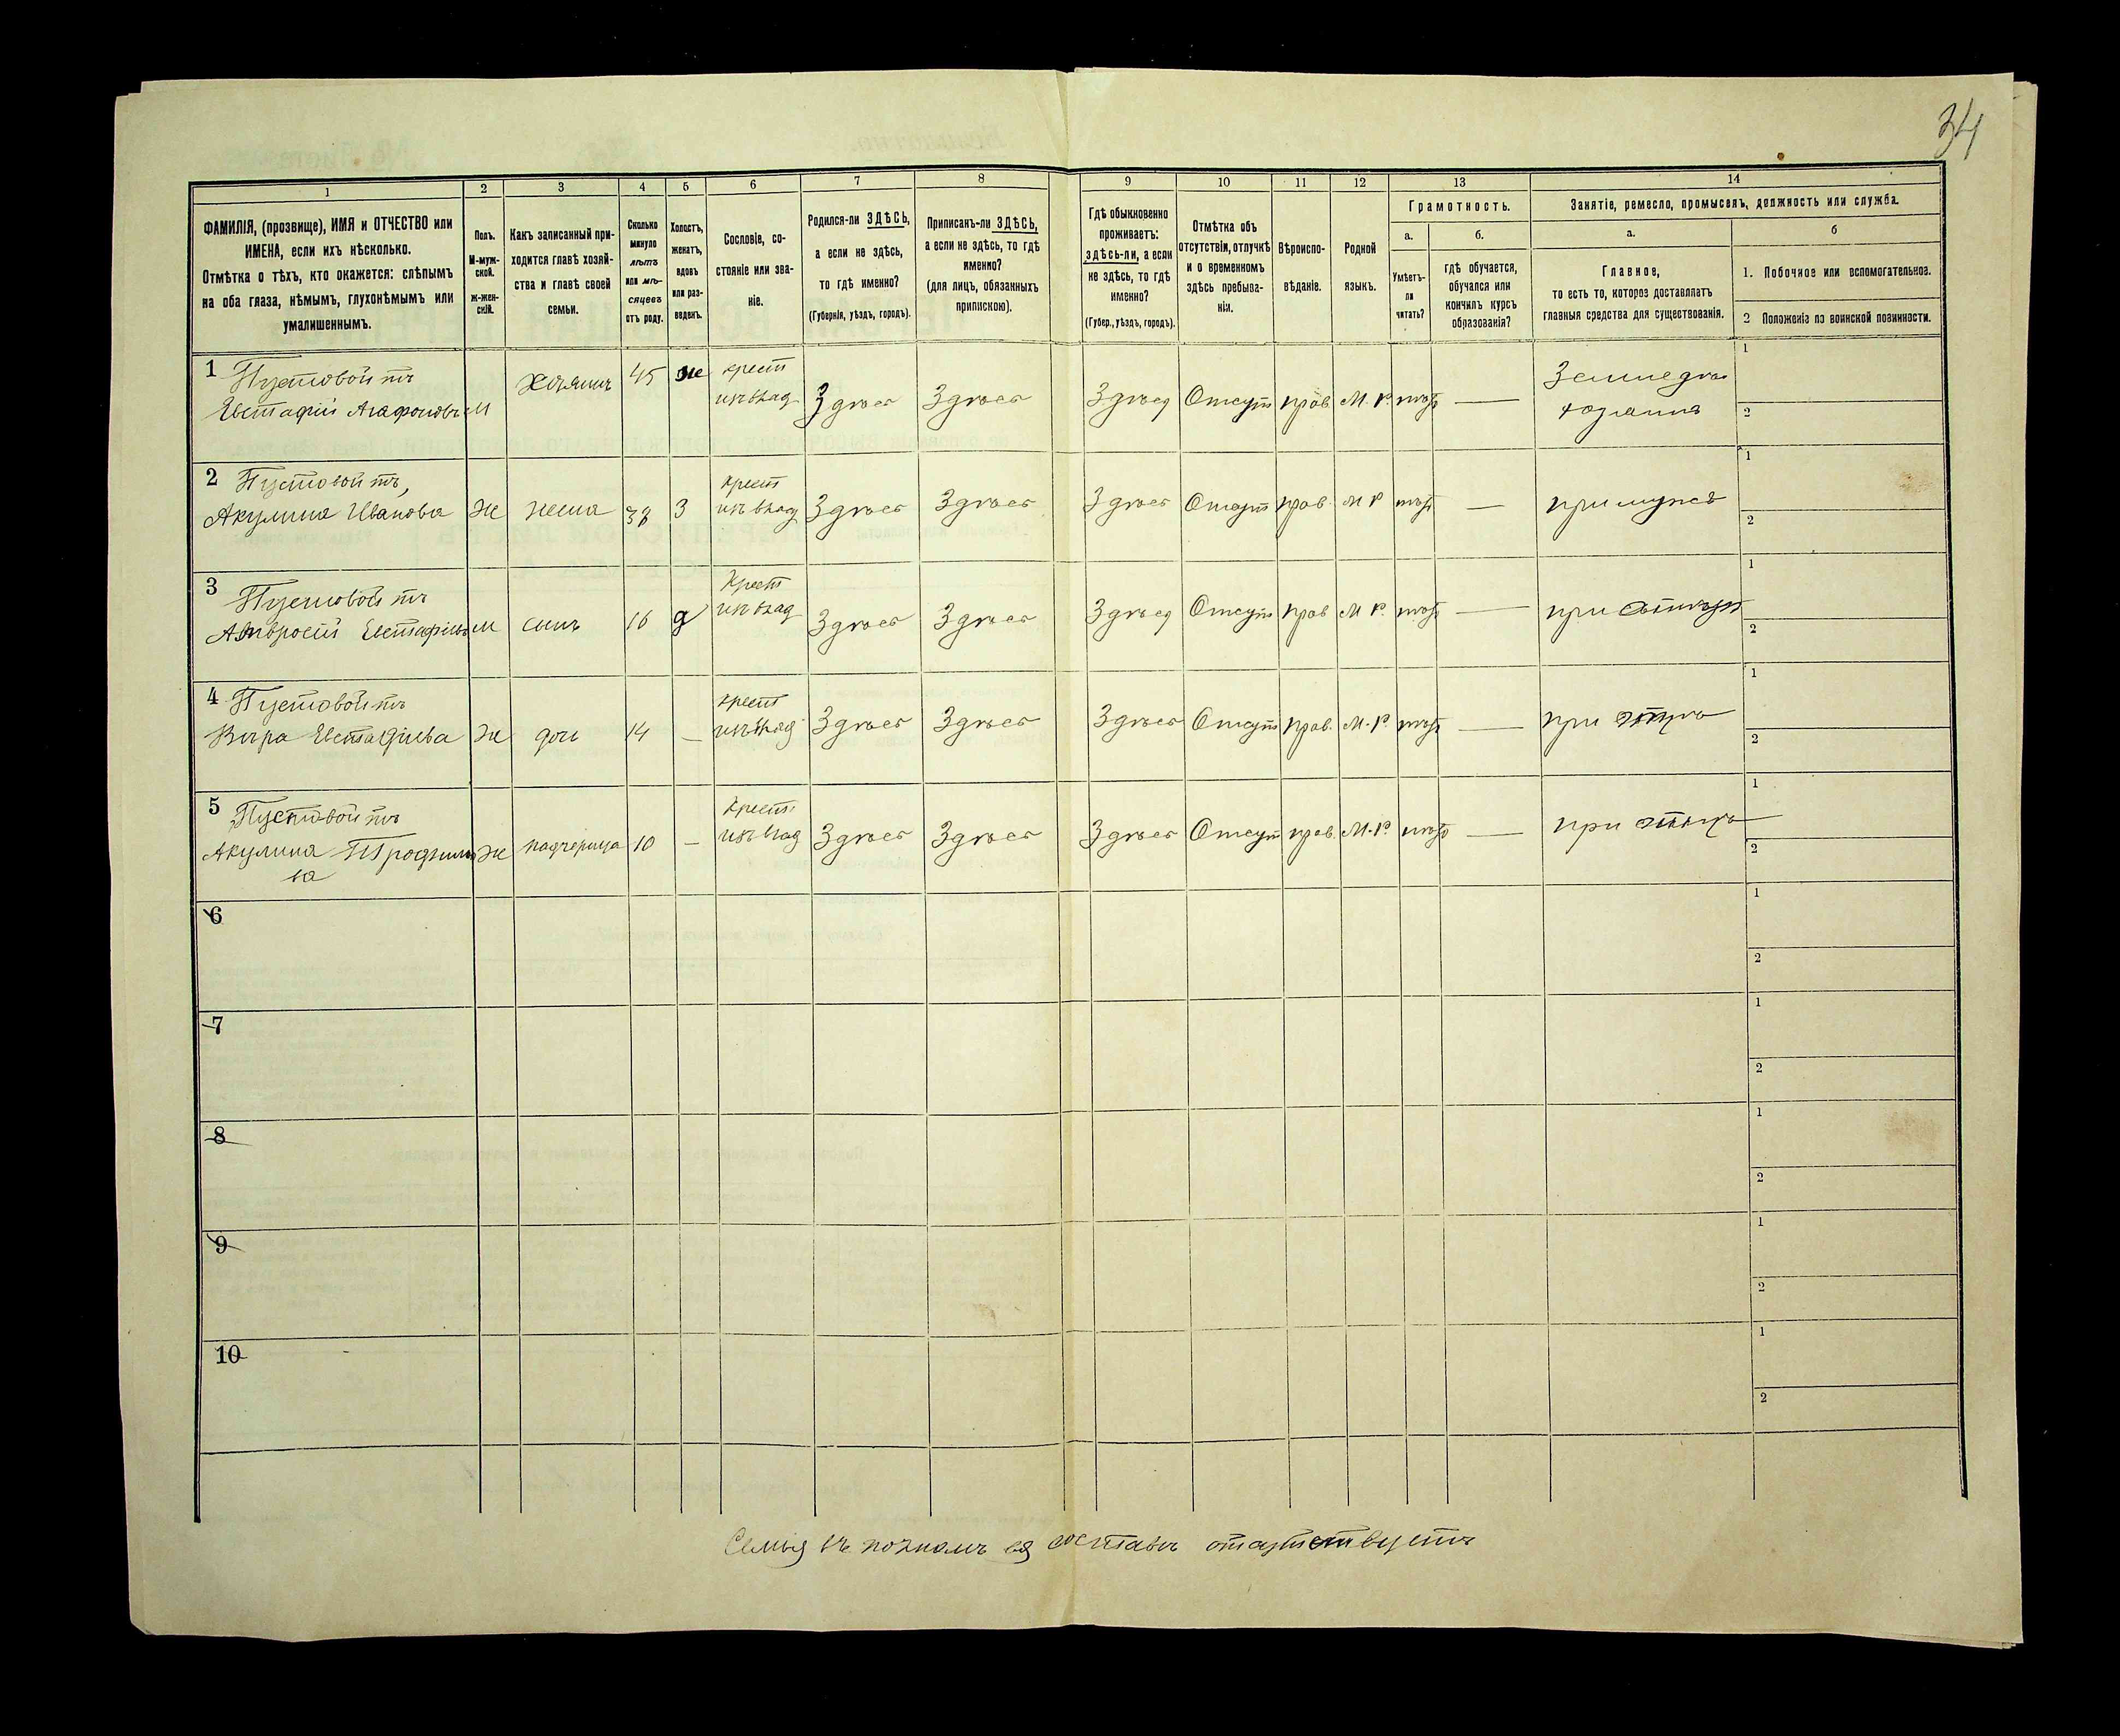 34
1 2 3 4 5 6 7 8 9 10 11 12 13 14
ФАМИЛІЯ, (прозвище), ИМЯ и ОТЧЕСТВО или
ИМЕНА, если ихъ нѣсколько.
Отмѣтка о тѣхъ, кто окажется: слѣпымъ
на оба глаза, нѣмымъ, глухонѣмымъ или
умалишеннымъ.
Полъ.
М-муж-
ской.
ж-жен-
скій.
Какъ записанный при-
ходится главѣ хозяй-
ства и главѣ своей
семьи.
Сколько
минуло
лѣтъ
или мѣ-
сяцевъ
отъ роду.
Холостъ,
женатъ,
вдовъ
или раз-
веденъ.
Сословіе, со-
стояніе или зва-
ніе.
Родился-ли ЗДѢСЬ,
а если не здѣсь,
то гдѣ именно?
(Губернія, уѣздъ, городъ).
Приписанъ-ли ЗДѢСЬ,
а если не здѣсь, то гдѣ
именно?
(для лицъ, обязанныхъ
припискою).
Гдѣ обыкновенно
проживаетъ:
ЗДѢСЬ-ЛИ, а если
не здѣсь, то гдѣ
именно?
(Губер., уѣздъ, городъ).
Отмѣтка объ
отсутствіи, отлучкѣ
и о временномъ
здѣсь пребыва-
ніи.
Вѣроиспо-
вѣданіе.
Родной
языкъ.
Грамотность.
а.
Умѣетъ-
ли
читать?
б.
гдѣ обучается,
обучался или
кончилъ курсъ
образованія?
Занятіе, ремесло, промыселъ, должность или служба.
а.
Главное,
то есть то, которое доставляетъ
главныя средства для существованія.
б
1. Побочное или вспомогательное.
2 Положеніе по воинской повинности.
1 Пустовойтъ
Евстафій Агафоновъ М Хозяинъ 45 же крест Здѣсь Здѣсь Здѣсь Отсут прав М.Р. 1
2
2 Пустовойтъ,
Акулина Иванова Ж жена 38 З крест Здѣсь Здѣсь Здѣсь Отсут прав. М Р — при мужѣ 1
2
3 Пустовойтъ
Амвросій М сынъ 16 крест Здѣсь Здѣсь Здѣсь Отсут прав М Р. — при 1
2
4 Пустовойтъ
Вѣра Евстафіева Ж дочь 14 — крест Здѣсь Здѣсь Здѣсь Отсут прав. М.Р. — при 1
2
5 Пустовойтъ
Акулина Трофимо Ж падчерица 10 — крест Здѣсь Здѣсь Здѣсь Отсут прав. М.Р. — при 1
ва 2
6 1
2
7 1
2
8 1
2
9 1
2
10 1
2
Семья въ полномъ ея составѣ отсутствуетъ